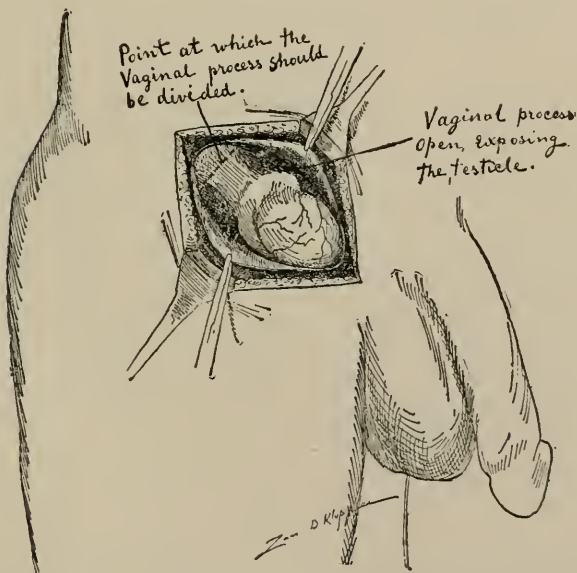 Point at which the
Vaginal process should
be divided.
Vaginal process
open, exposing
the, testicle.